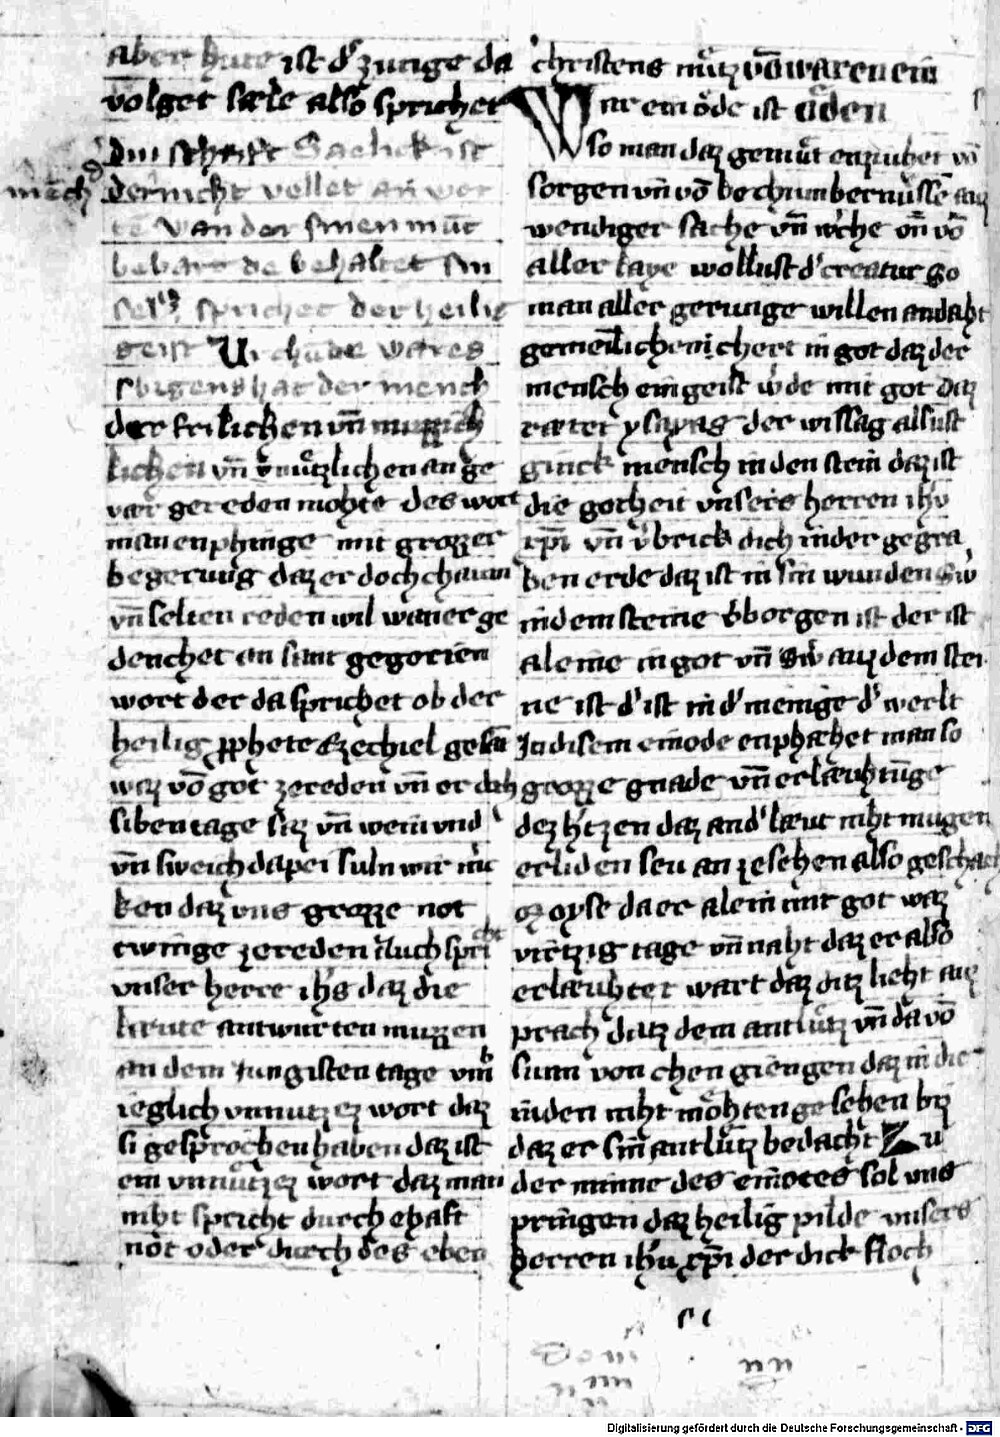 aber hute ist d' zunge da
volget sæle also sprichet
diu schrift Sælich ist
der nicht vellet an wor
mēch
te wan der sinen mūt
bebart de behaltet sin
sel spricht der heilig
geist Urchūde wares
swigens hat der mench
der frilichen vn̄
lichen vn̄ vnnützlichen an ge
vær gereden mohte des wort
man enphinge mit grozzer
begerung daz er doch chaum
vn̄ selten reden wil wan er ge
denchet an sant gegorien
wort der da sprichet ob der
heilig pphete Ezechiel gesāt
waz vō got zereden vn̄ er doch
siben tage saz vn̄ wein vnd
vn̄ sweich da pei suln wir mer
ken daz vns grozze not
twinge zereden Auch spricht
vnser herre ih's daz die
læute antwurten muzzen
an dem Jungisten tage vm̄
ieglich vnnutzez wort daz
si gesprochen haben daz ist
ein vnnützez wort daz man
niht spricht durch ehaft
not oder durch des eben
christens nütz vō waren ein
War einöde ist öden
so man daz gemüt enziuhet vō
sorgen vn̄ vō bechumbernüssē auz
wendiger sache vn̄ w'che vn̄ vō
aller laye wollust d' creatur So
man aller gerunge willen andaht
gemeīlichen chert in got daz der
mensch ein geist w'de mit got daz
rætet ysayas der wissag allsust
ginck mensch in den stein daz ist
die gotheit vnsers herren ih'u
xp̄i vn̄ v'brick dich in der gegra
ben erde daz ist in sin wunden Sw'
in dem steine v'borgen ist der ist
aleine in got vn̄ Sw' auz dem stei
ne ist d' ist in d' menige d' werlt
In disem einode enphæhet man so
grozze gnade vn̄ erlæuhtūge
dez h'tzen daz and' læut niht mugen
erliden seu an zesehen also geschach
moyse da er alein mit got waz
viertzig tage vn̄ naht daz er also
erlæuhtet wart daz ditz lieht auz
prach dutz dem antlütz vn̄ da vō
sunn von chen giengen daz in die
inden niht möhten gesehen biz
daz er sin antlütz bedacht Zu
der minne des einotes sol uns
pringen daz heilig pilde vnsers
herren ih'u xp̄i der dick floch
Digitalisierung gefördert durch die Deutsche Forschungsgemeinschaft - DFG